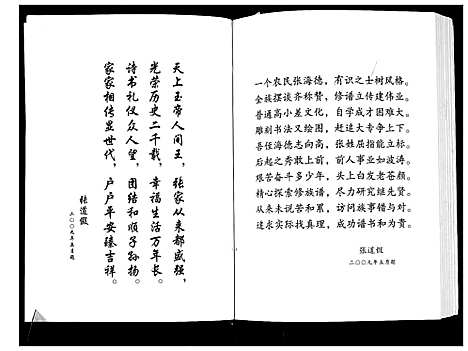 天上玉帝人间王，张家从来都盛强，
光荣历史二千载，幸福生活万年长。
诗书礼仪众人望，团结和顺子孙扬。
家家相传显世代，户户平安臻吉祥。
张道假
二〇〇九年五月题
一个农民张海德，有识之士树风格。
全族摆谈齐称赞，修谱立传建伟业。
普通高小差文化，自学成才困难大。
雕刻书法又绘图，赶造大专争上下。
吾侄海德志向高，张姓屈指能立言。
后起之秀敢上前，前人事业如波涛。
艰苦奋斗多少年，头上白发老苍颜。
精心探索修族谱，尽力研究继先贤。
从来未说苦和累，访问族事错与对。
追求实际找真理，成功谱书和为贵。
张道假
二〇〇九年五月题